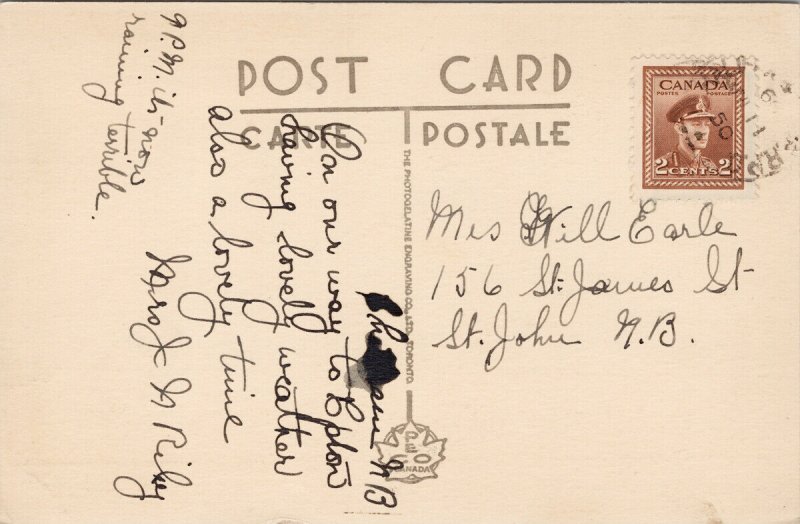 POST CARD
CARTE POSTALE
THE PHOTOGELATINE ENGRAVING CO., LTD. TORONTO
CANADA
CANADA
POSTES POSTAGE
2 CENTS 2
50
N B
On our way to Epton
having lovely weather
also a lovely time
Mrs J W Riley
9 P.M. its now
raining terrible.
Mrs Will Earle
156 St. James St
St. John N.B.